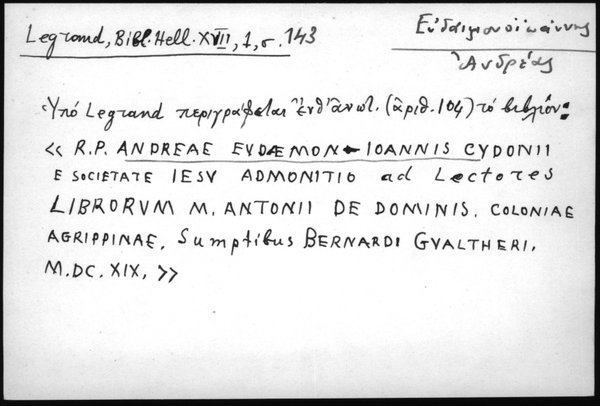 Legrand, Bibl. Hell. XVII, 1, σ. 143
Εὐδαιμονοϊωάννης
Ἀνδρέας
Ὑπό Legrand περιγράφεται ἐνθ' ἀνωτ. (ἀριθ. 104) τό βιβλίον:
« R.P. ANDREAE EVDÆMON-IOANNIS CYDONII
E SOCIETATE IESV ADMONITIO ad Lectores
LIBRORVM M. ANTONII DE DOMINIS. COLONIAE
AGRIPPINAE, Sumptibus BERNARDI GVALTHERI.
M.DC.XIX, »